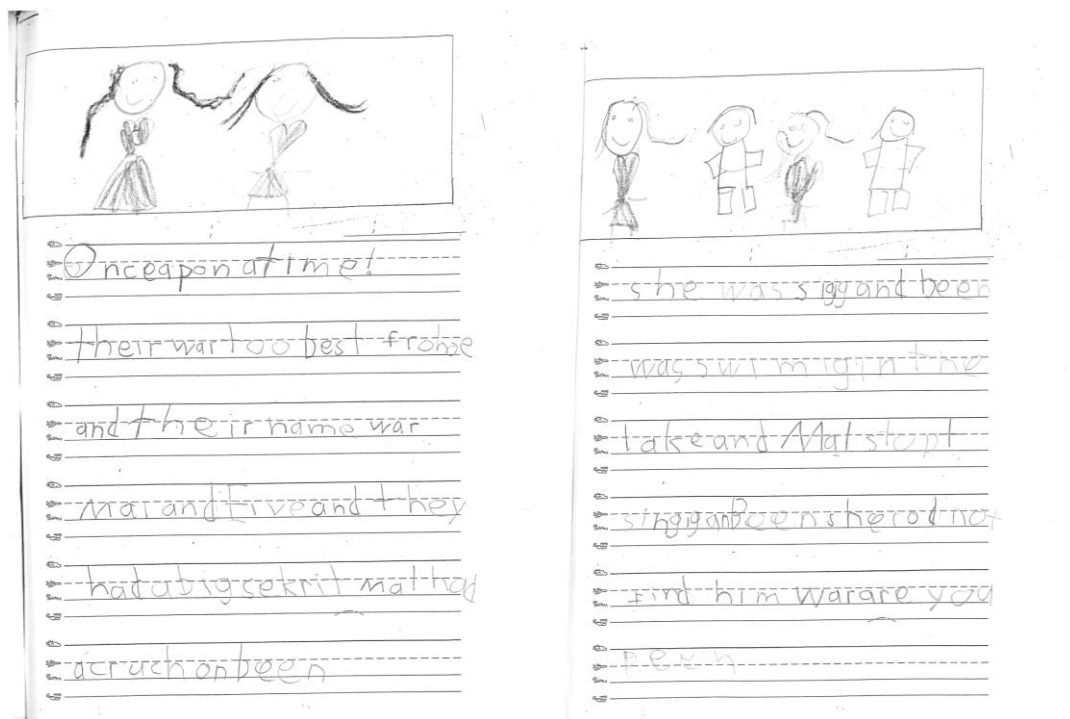 Once apon a time!
their war too best
and their name war
Mar and Five and they
had a big sekrit mat had
a crach on been
she was sigg and been
was swimig in the
lake and Mat stopt
singig an Been she cod not
find him war are you
been